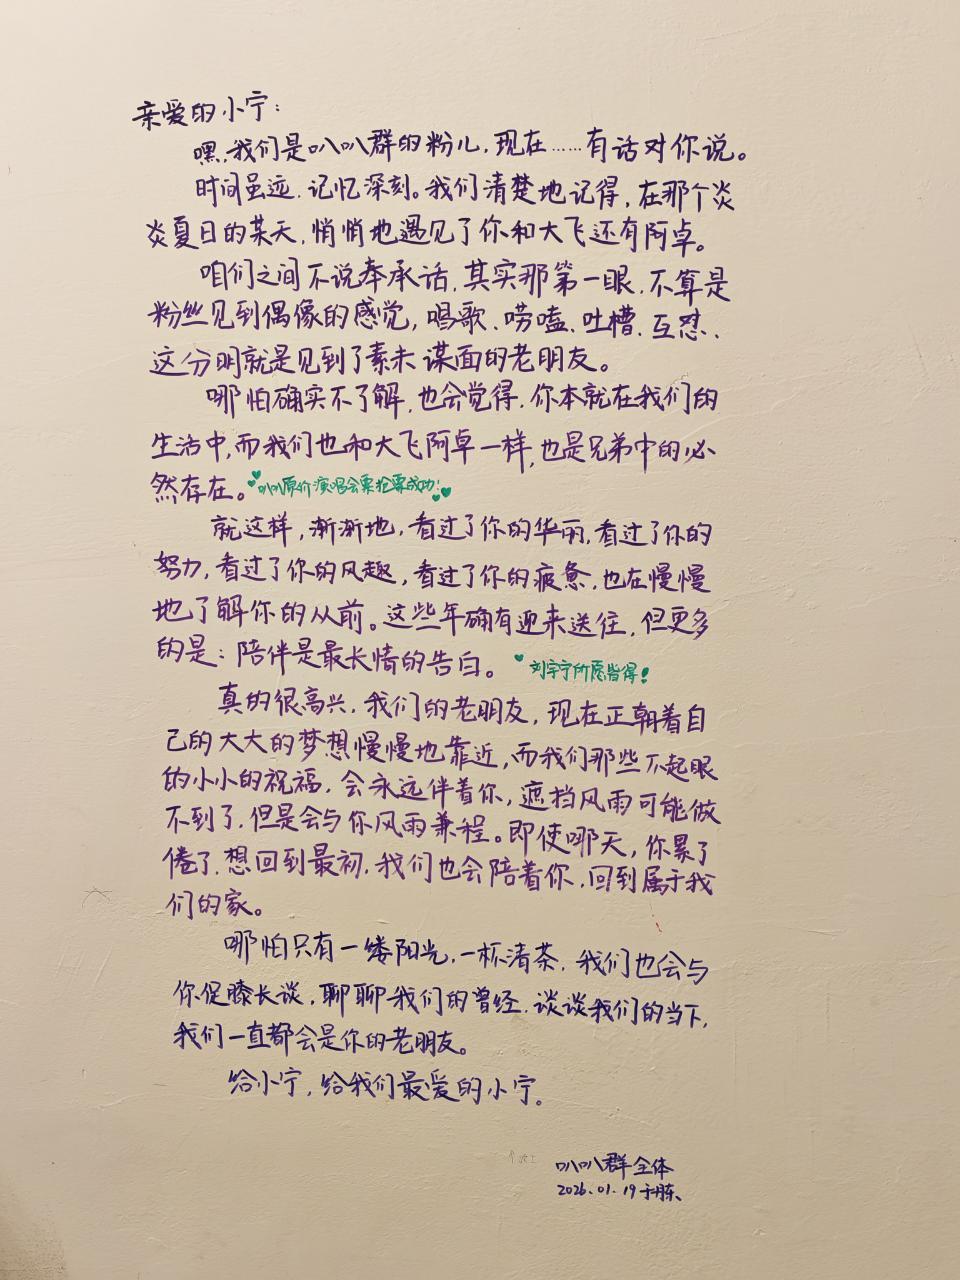 亲爱的小宁：
嘿，我们是叭叭群的粉儿，现在……有话对你说。
时间虽远，记忆深刻。我们清楚地记得，在那个炎
炎夏日的某天，悄悄地遇见了你和大飞还有阿卓。
咱们之间不说奉承话，其实那第一眼，不算是
粉丝见到偶像的感觉，唱歌、唠嗑、吐槽、互怼、
这分明就是见到了素未谋面的老朋友。
哪怕确实不了解，也会觉得，你本就在我们的
生活中，而我们也和大飞阿卓一样，也是兄弟中的必
然存在。
叭叭原价演唱会票抢票成功！
就这样，渐渐地，看过了你的华丽，看过了你的
努力，看过了你的风趣，看过了你的疲惫，也在慢慢
地了解你的从前。这些年确有迎来送往，但更多
的是：陪伴是最长情的告白。
刘宇宁所愿皆得！
真的很高兴，我们的老朋友，现在正朝着自
己的大大的梦想慢慢地靠近，而我们那些不起眼
的小小的祝福，会永远伴着你，遮挡风雨可能做
不到了，但是会与你风雨兼程。即使哪天，你累了
倦了，想回到最初，我们也会陪着你，回到属于我
们的家。
哪怕只有一缕阳光，一杯清茶，我们也会与
你促膝长谈，聊聊我们的曾经，谈谈我们的当下，
我们一直都会是你的老朋友。
给小宁，给我们最爱的小宁。
叭叭群全体
2026.01.19于丹东、